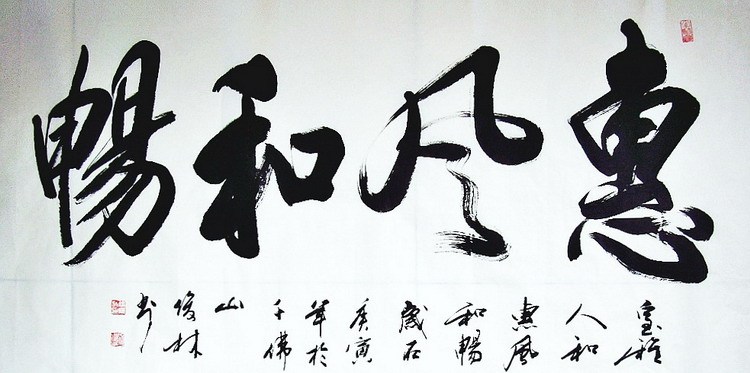 惠风和暢
室雅
人和
惠風
和暢
歲在
庚寅
年於
千佛
山
俊林
书